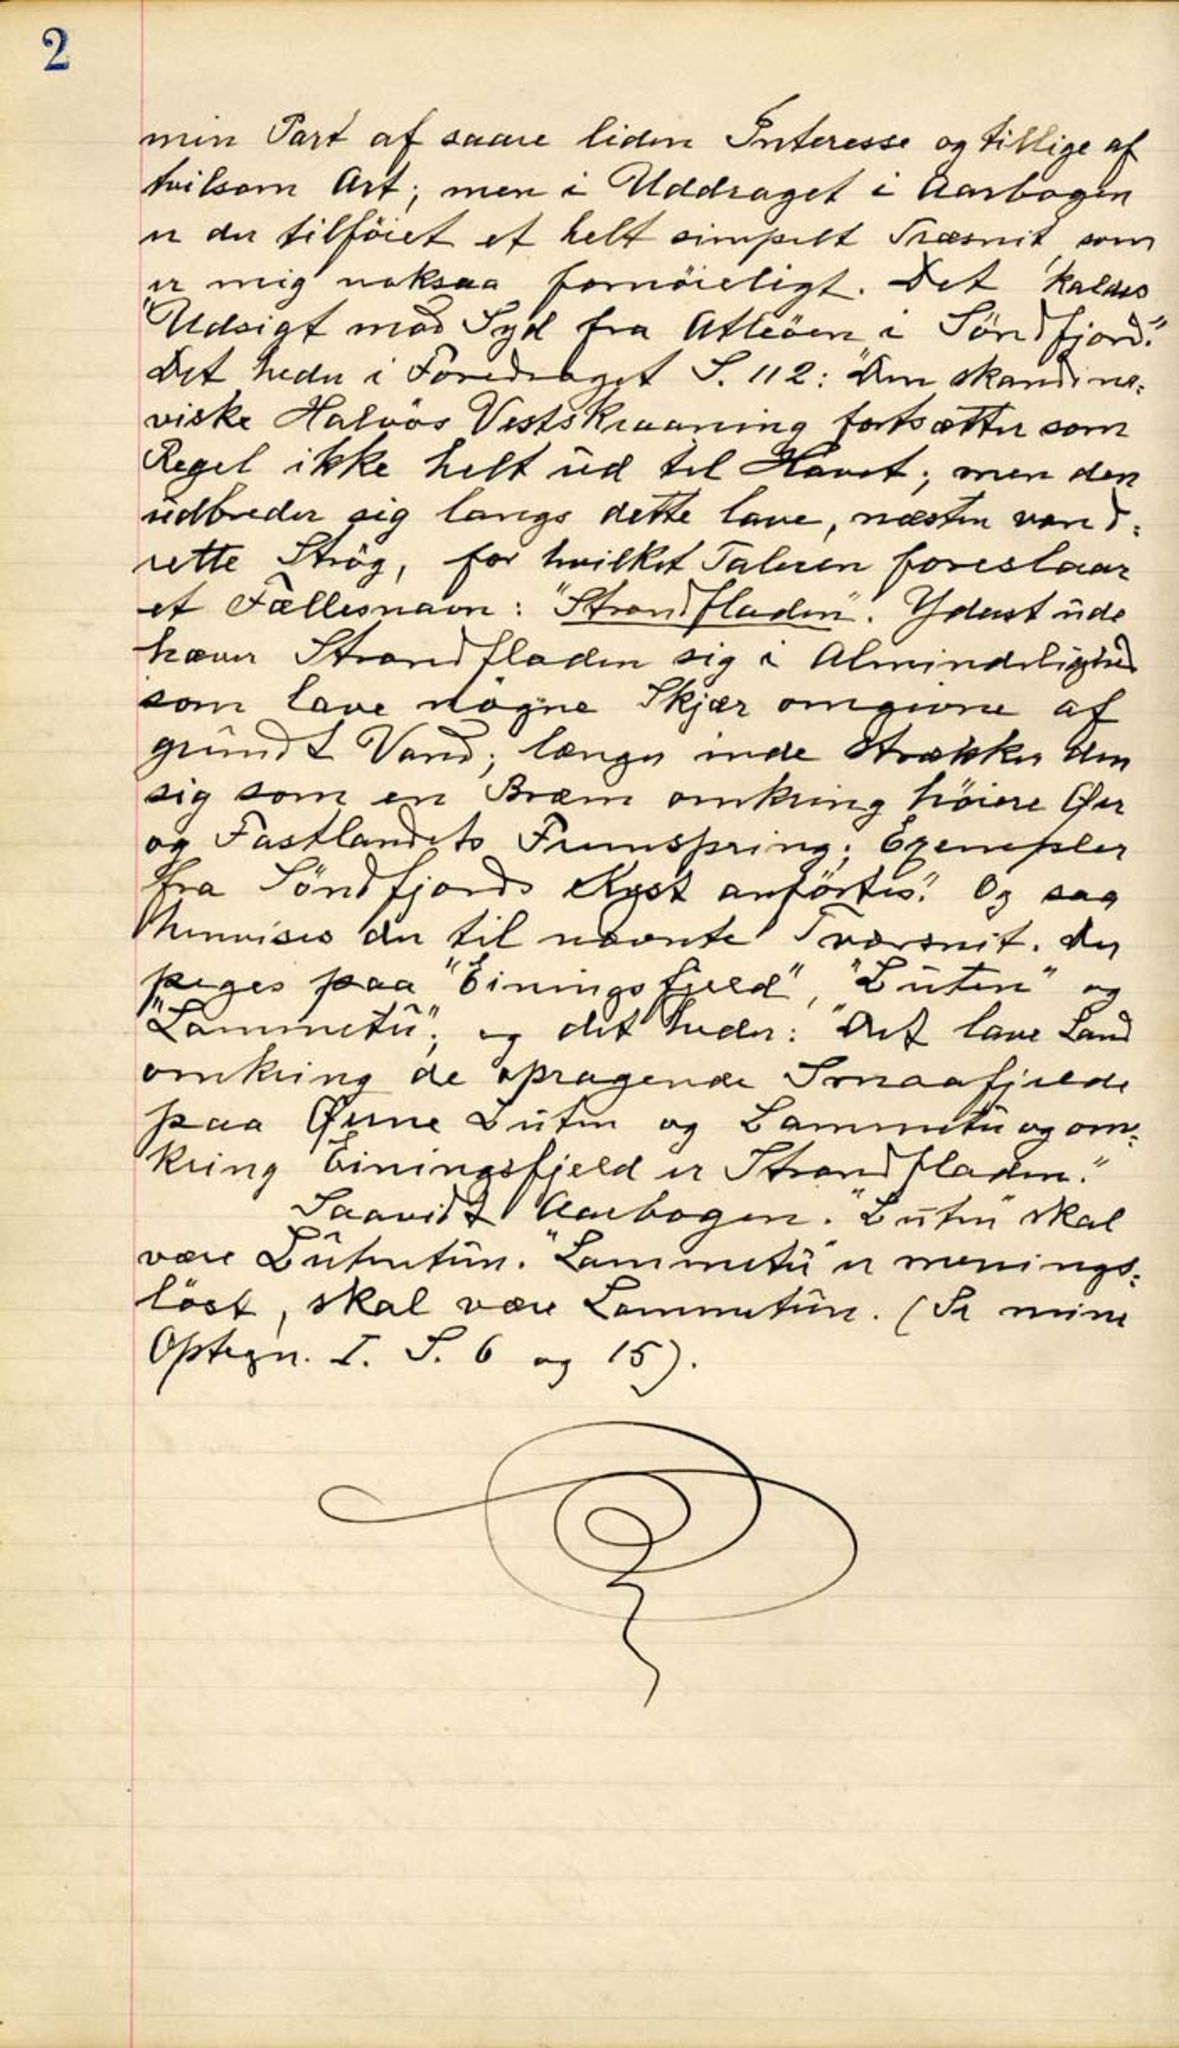 2
min Part af saare liden Interesse og tillige af
tvilsom Art; men i Uddraget i Aarbogen
er der tilföiet et helt simpelt Træsnit som
er mig noksaa fornöieligt. Det kaldes
"Udsigt mod Syd fra Atleöen i Söndfjord."
Det heder i Foredraget S. 112: "Den skandina-
viske Halvös Vestskraaning fortsætter som
Regel ikke helt ud til Havet; men den
udbreder sig langs dette lave, næsten vand-
rette Strög, for hvilket Taleren foreslaar
et Fællesnavn: "Strandfladen". Yderst ude
hæver Strandfladen sig i Almindelighed
som lave nögne Skjær omgivne af
grundt Vand; længer inde strækker den
sig som en Bræm omkring höiere Øer
og Fastlandets Fremspring; Exempler
fra Söndfjords Kyst anförtes." Og saa
henvises der til nævnte Tværsnit. Der
peges paa "Einingsfjeld", "Luten" og
"Lammetu"; og det heder: "Det lave Land
omkring de opragende Smaafjelde
paa Øerne Luten og Lammetu og om-
kring Einingsfjeld er Strandfladen."
Saavidt Aarbogen. "Luten" skal
være Lutentun. "Lammetu" er menings-
löst, skal være Lammetun. (Se mine
Optegn. I. S. 6 og 15).